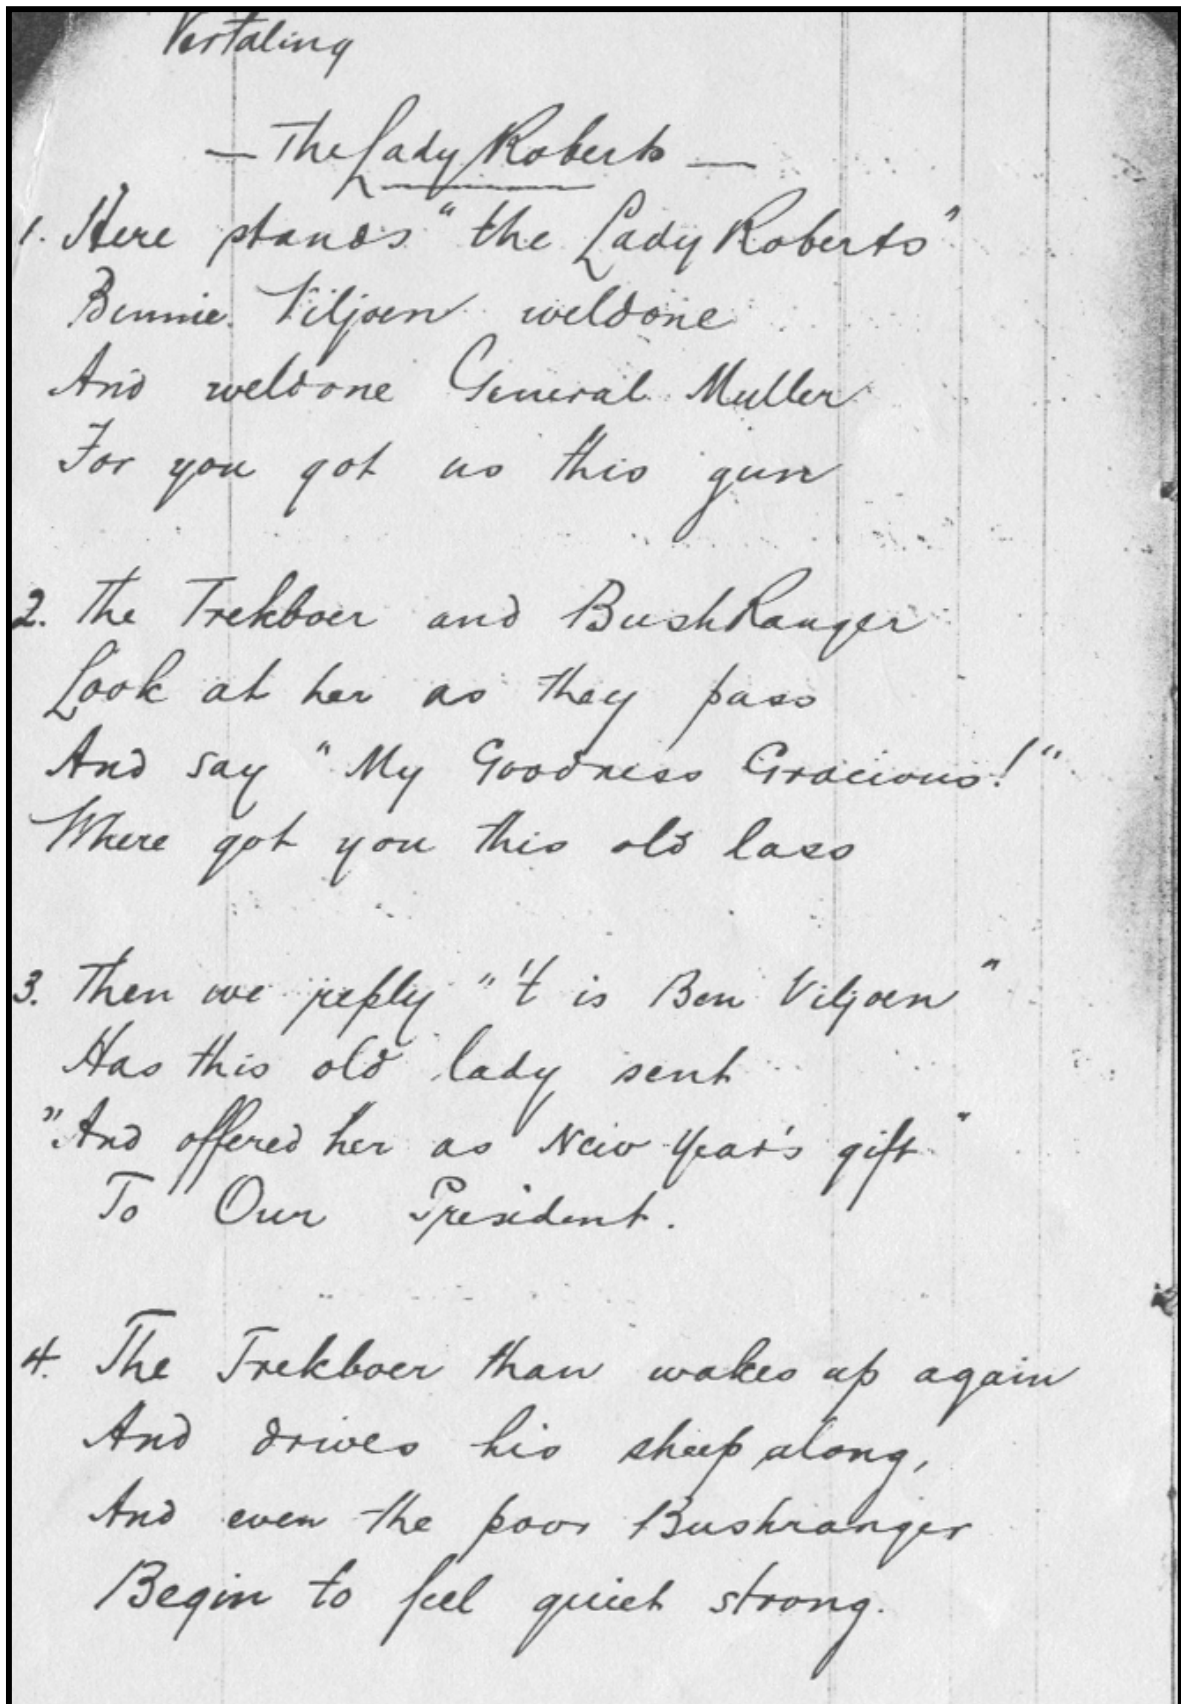 Vertaling
— The Lady Roberts —
1. Here stands "the Lady Roberts"
Bennie Viljoen weldone
And weldone General Muller
For you got us this gun
2. The Trekboer and BushRanger
Look at her as they pass
And say "My Goodness Gracious!"
Where got you this old lass
3. Then we reply "'t is Ben Viljoen"
Has this old lady sent
"And offered her as New Year's gift"
To Our President.
4. The Trekboer than wakes up again
And drives his sheep along,
And even the poor Bushranger
Begin to feel quiet strong.